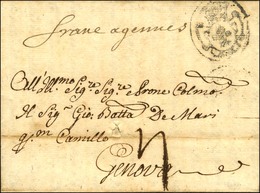 franc agennes
All Ill.mo Sig.re Sig.re Prone Colmo
Il Sig.r Gio: Batta De Mari
q.m Camillo
Genova